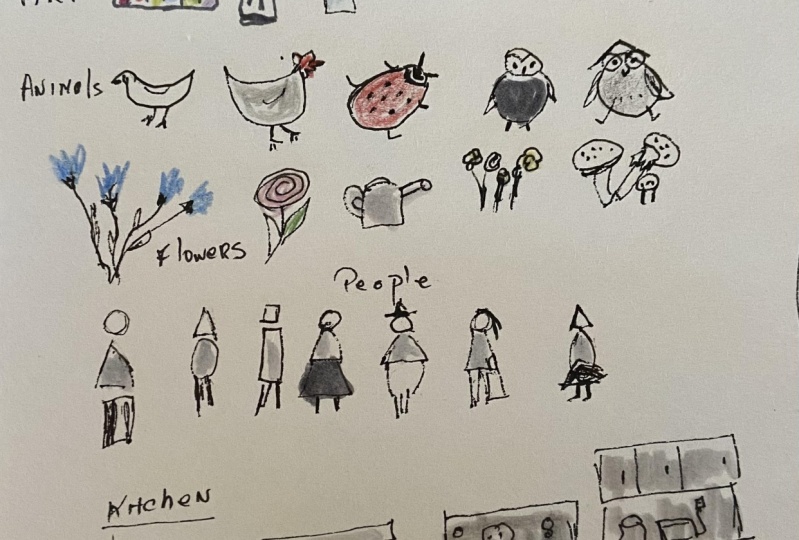 Animals
Flowers
People
Kitchen